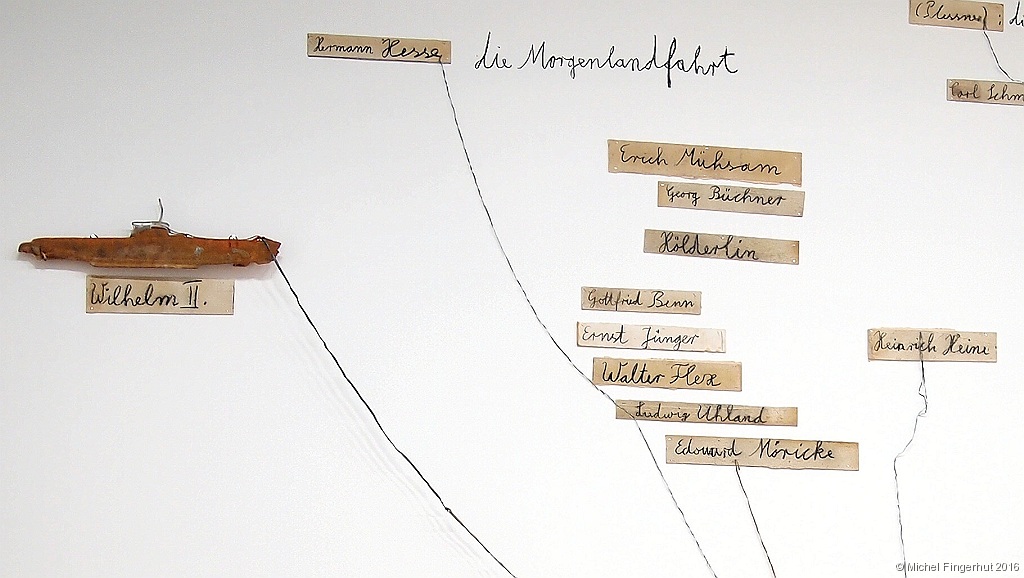 (Plessner) : di
Hermann Hesse die Morgenlandfahrt
Carl Schm
Erich Mühsam
Georg Büchner
Hölderlin
Wilhelm II.
Gottfried Benn
Ernst Jünger
Heinrich Heine
Walter Flex
Ludwig Uhland
Edouard Möricke
© Michel Fingerhut 2016